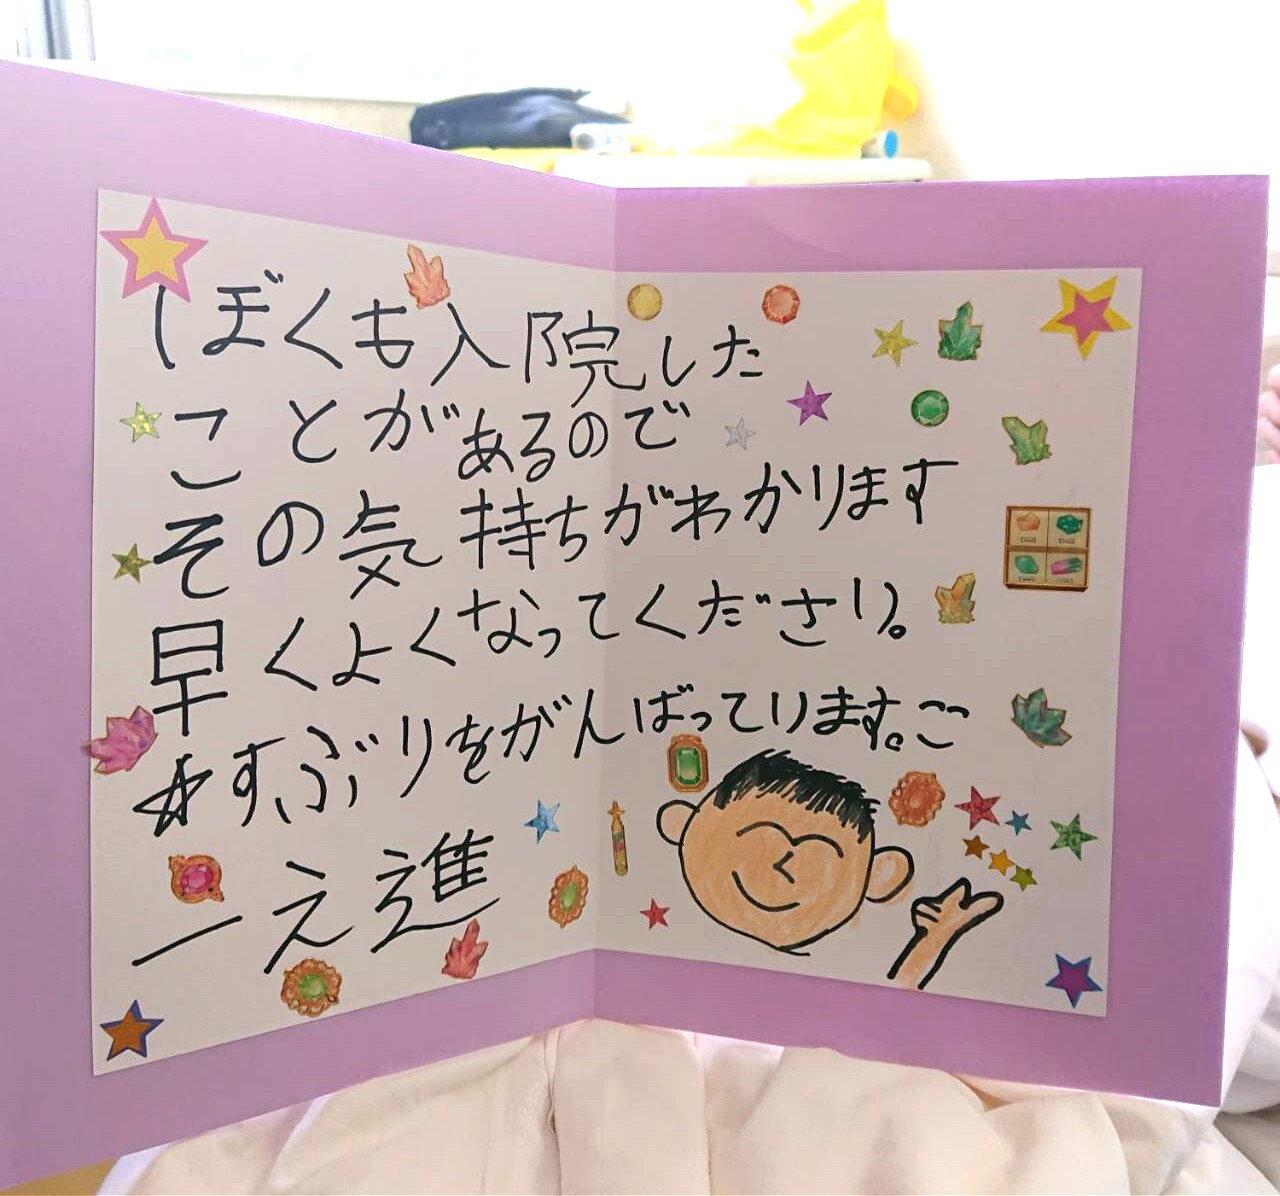 ぼくも入院した
ことがあるので
その気持ちがわかります
早くよくなってください。
☆すぶりをがんばっています。
一え進